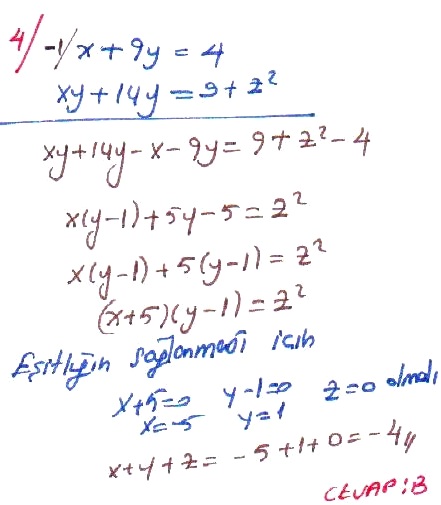 4/ -1/ x + 9y = 4
xy + 14y = 9 + z²
xy + 14y - x - 9y = 9 + z² - 4
x(y-1) + 5y - 5 = z²
x(y-1) + 5(y-1) = z²
(x+5)(y-1) = z²
Eşitliğin sağlanması için
x+5=0 y-1=0 z=0 olmalı
x=-5 y=1
x+y+z = -5+1+0 = -4//
CEVAP: B